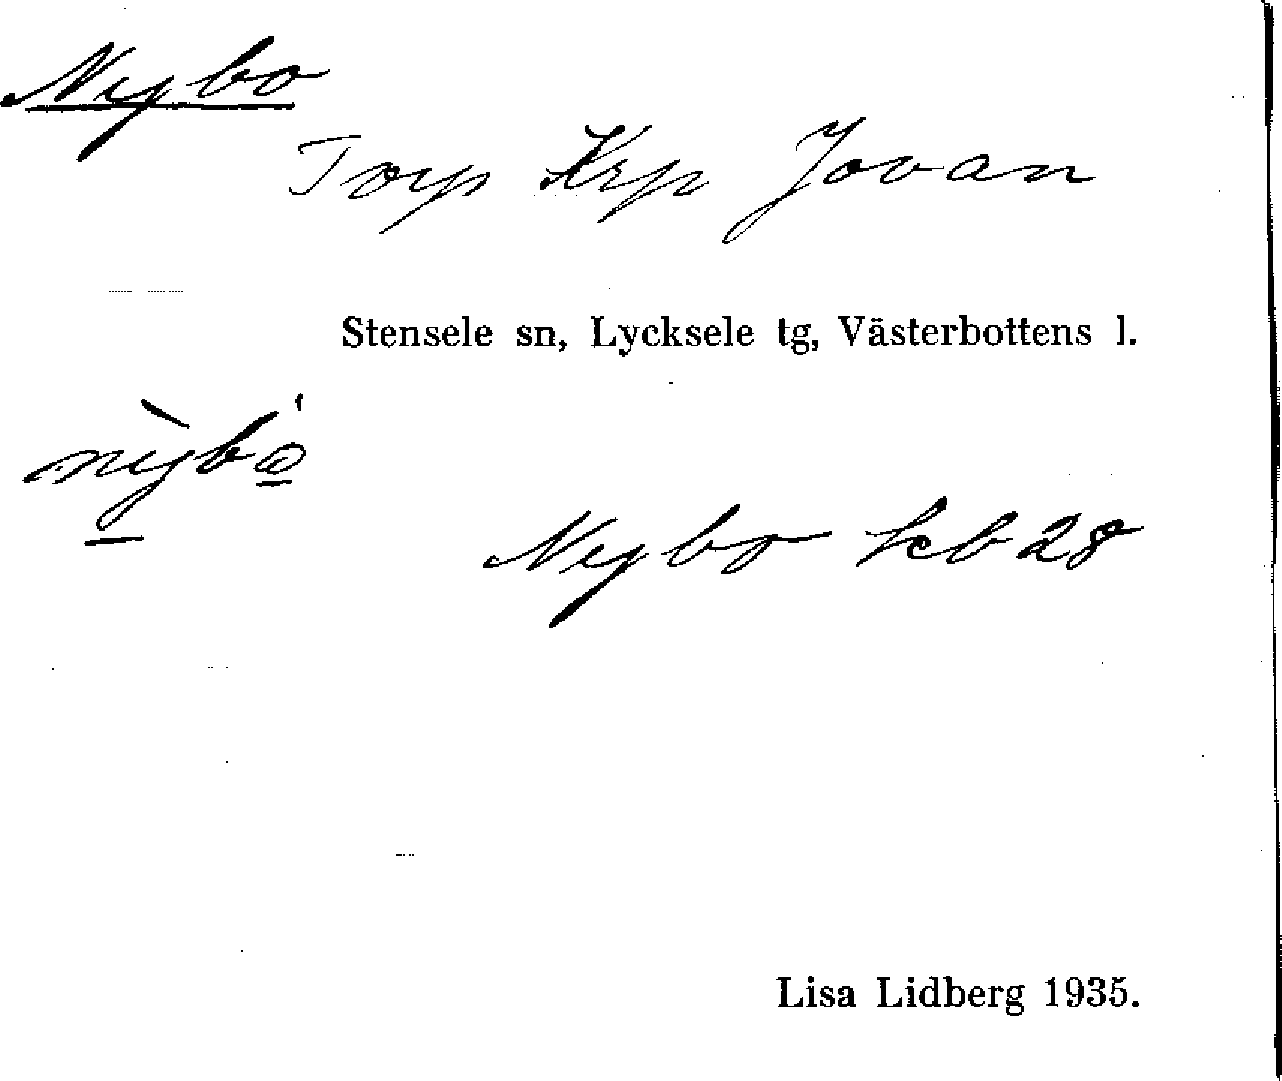 Nybo
Torp Krp Jovan
Stensele sn, Lycksele tg, Västerbottens l.
Nybo hcb 28
Lisa Lidberg 1935.